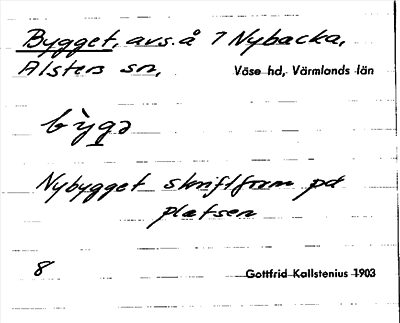 Bygget, avs. å 7 Nybacka,
Alsters sn, Väse hd, Värmlands län
bỳgə
Nybygget skriftform på
platsen
8 Gottfrid Kallstenius 1903